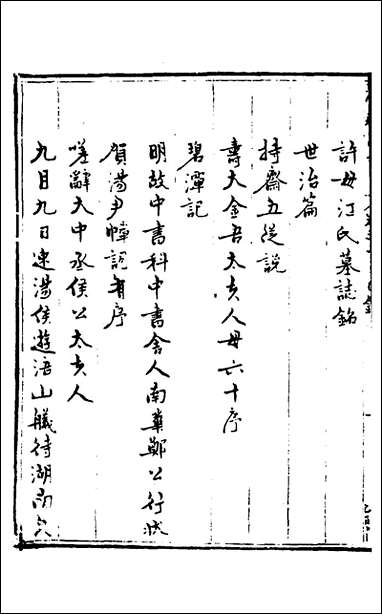 許母江氏墓誌銘
世治篇
持齋五從說
壽大金吾太夫人母六十序
碧潭記
明故中書科中書舍人南 鄭公行狀
賀湯尹 詞有序
嗟辭大中丞侯公太夫人
九月九日速湯侯遊浯山 待湖南